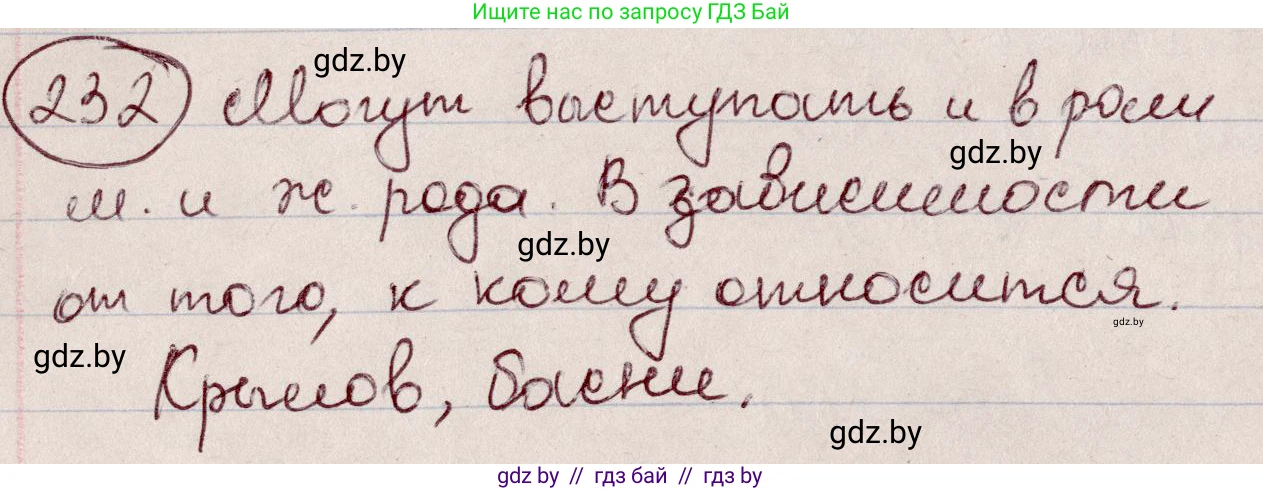 Ищите нас по запросу ГДЗ Бай
gdz.by
232 Могут выступать и в роли
gdz.by
м. и ж. рода. В зависимости
gdz.by
от того, к кому относится.
gdz.by
gdz.by
Крылов, басни.
gdz.by
gdz by // гдз бай // гдз by